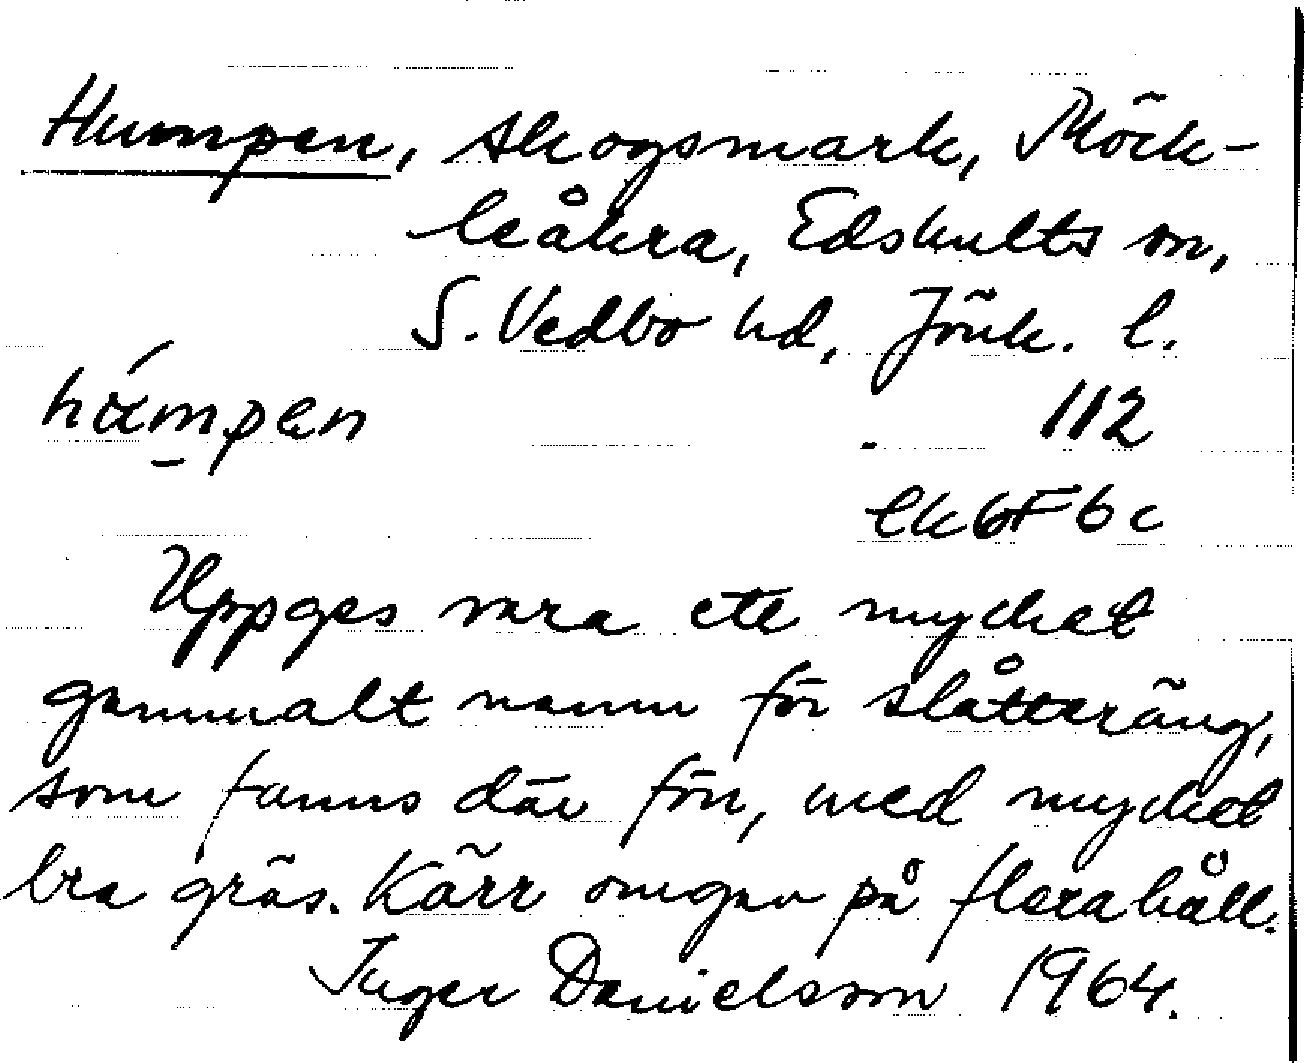 Humpen, skogsmark, Möck-
leåkra, Edshults sn,
S. Vedbo hd, Jönk. l.
hämpen 112
ek 6F6c
Uppges vara ett mycket
gammalt namn för slåtteräng,
som fanns där förr, med mycket
bra gräs. Kärr omgav på flera håll.
Inger Danielsson 1964.